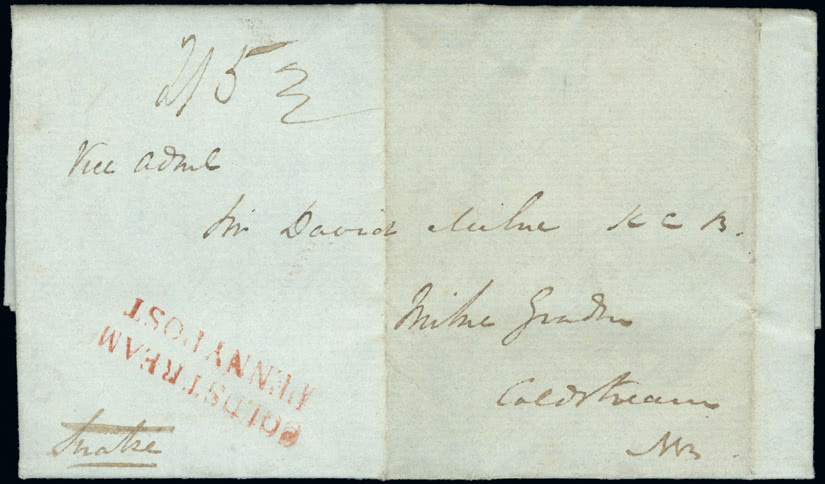 2/5½
Vice Adml
Sir David Milne K C B.
Milne Graden
Coldstream
NB
COLDSTREAM
PENNY POST